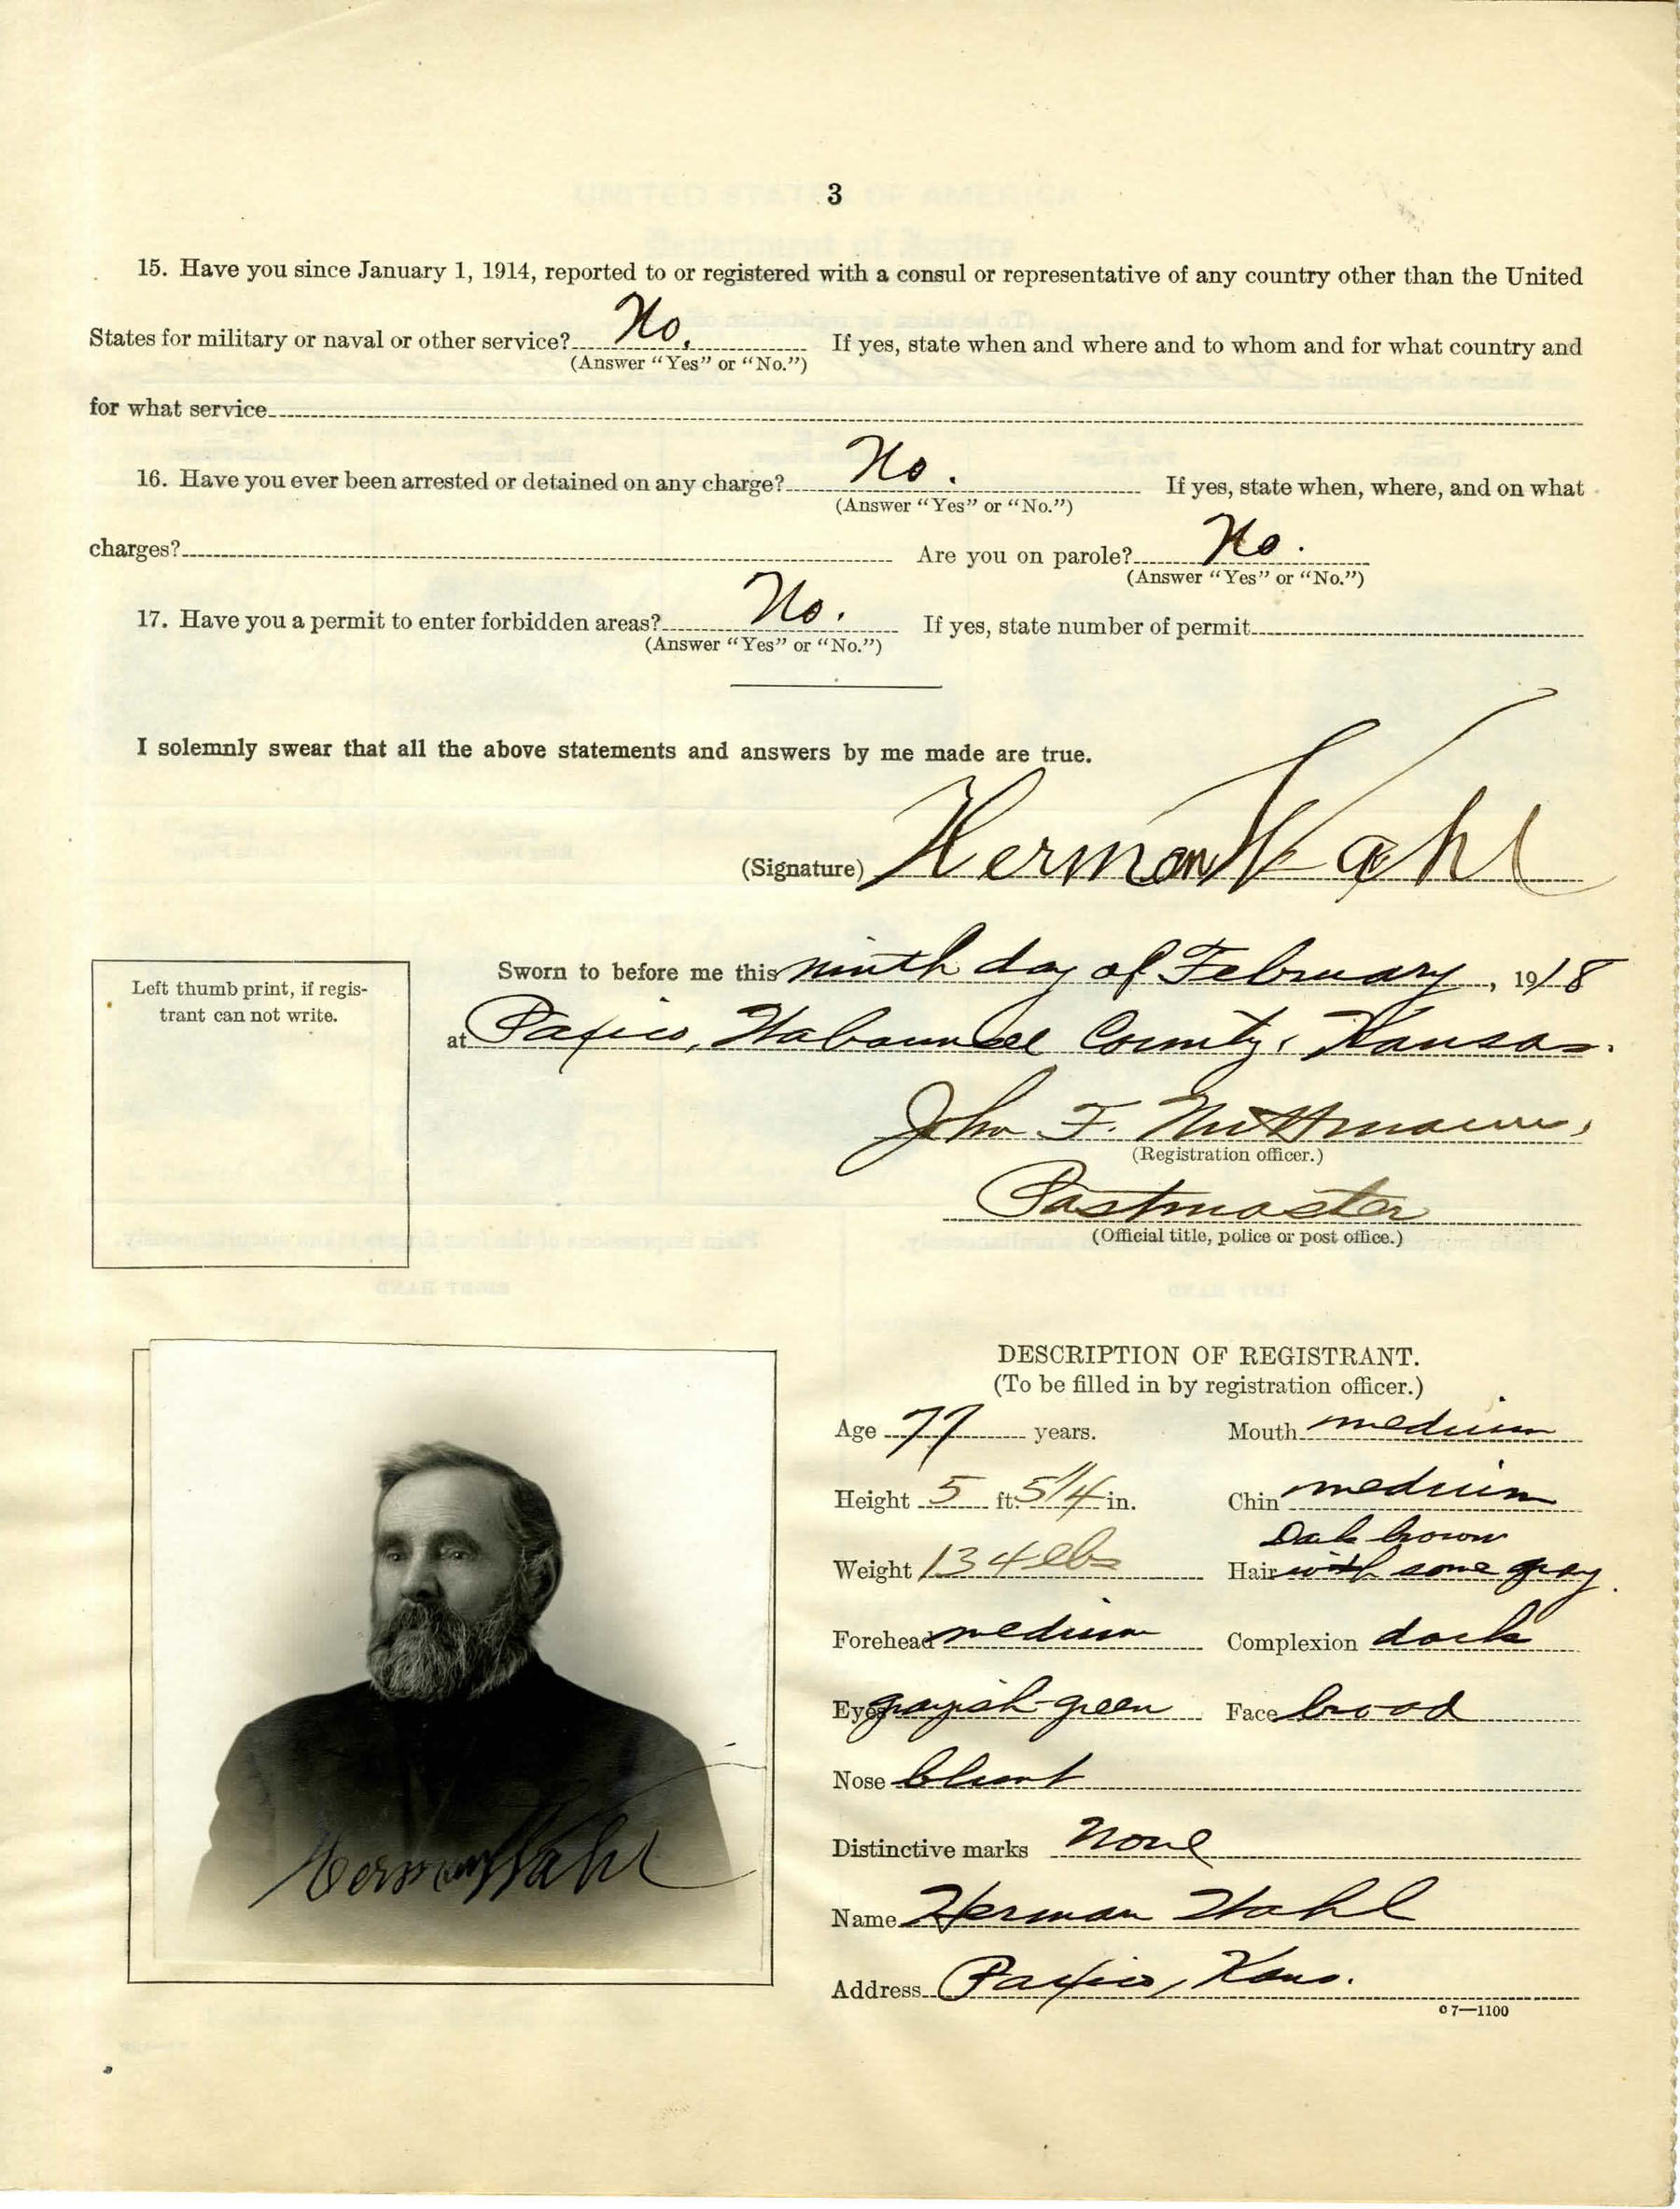 3
15. Have you since January 1, 1914, reported to or registered with a consul or representative of any country other than the United
States for military or naval or other service? No. If yes, state when and where and to whom and for what country and
(Answer "Yes" or "No.")
for what service
16. Have you ever been arrested or detained on any charge? No. If yes, state when, where, and on what
(Answer "Yes" or "No.")
charges? Are you on parole? No.
(Answer "Yes" or "No.")
17. Have you a permit to enter forbidden areas? No. If yes, state number of permit
(Answer "Yes" or "No.")
I solemnly swear that all the above statements and answers by me made are true.
(Signature) Herman Wahl
Left thumb print, if regis-
trant can not write.
Sworn to before me this ninth day of February, 1918
at Paxico, Wabaunsee County, Kansas.
John F.
(Registration officer.)
Postmaster
(Official title, police or post office.)
Herman Wahl
DESCRIPTION OF REGISTRANT.
(To be filled in by registration officer.)
Age 77 years. Mouth medium
Height 5 ft. 5 1/4 in. Chin medium
Dark brown
Weight 134 lbs Hair with some gray.
Forehead medium Complexion dark
Eyes grayish-green Face broad
Nose blunt
Distinctive marks None
Name Herman Wahl
Address Paxico, Kans.
c7—1100